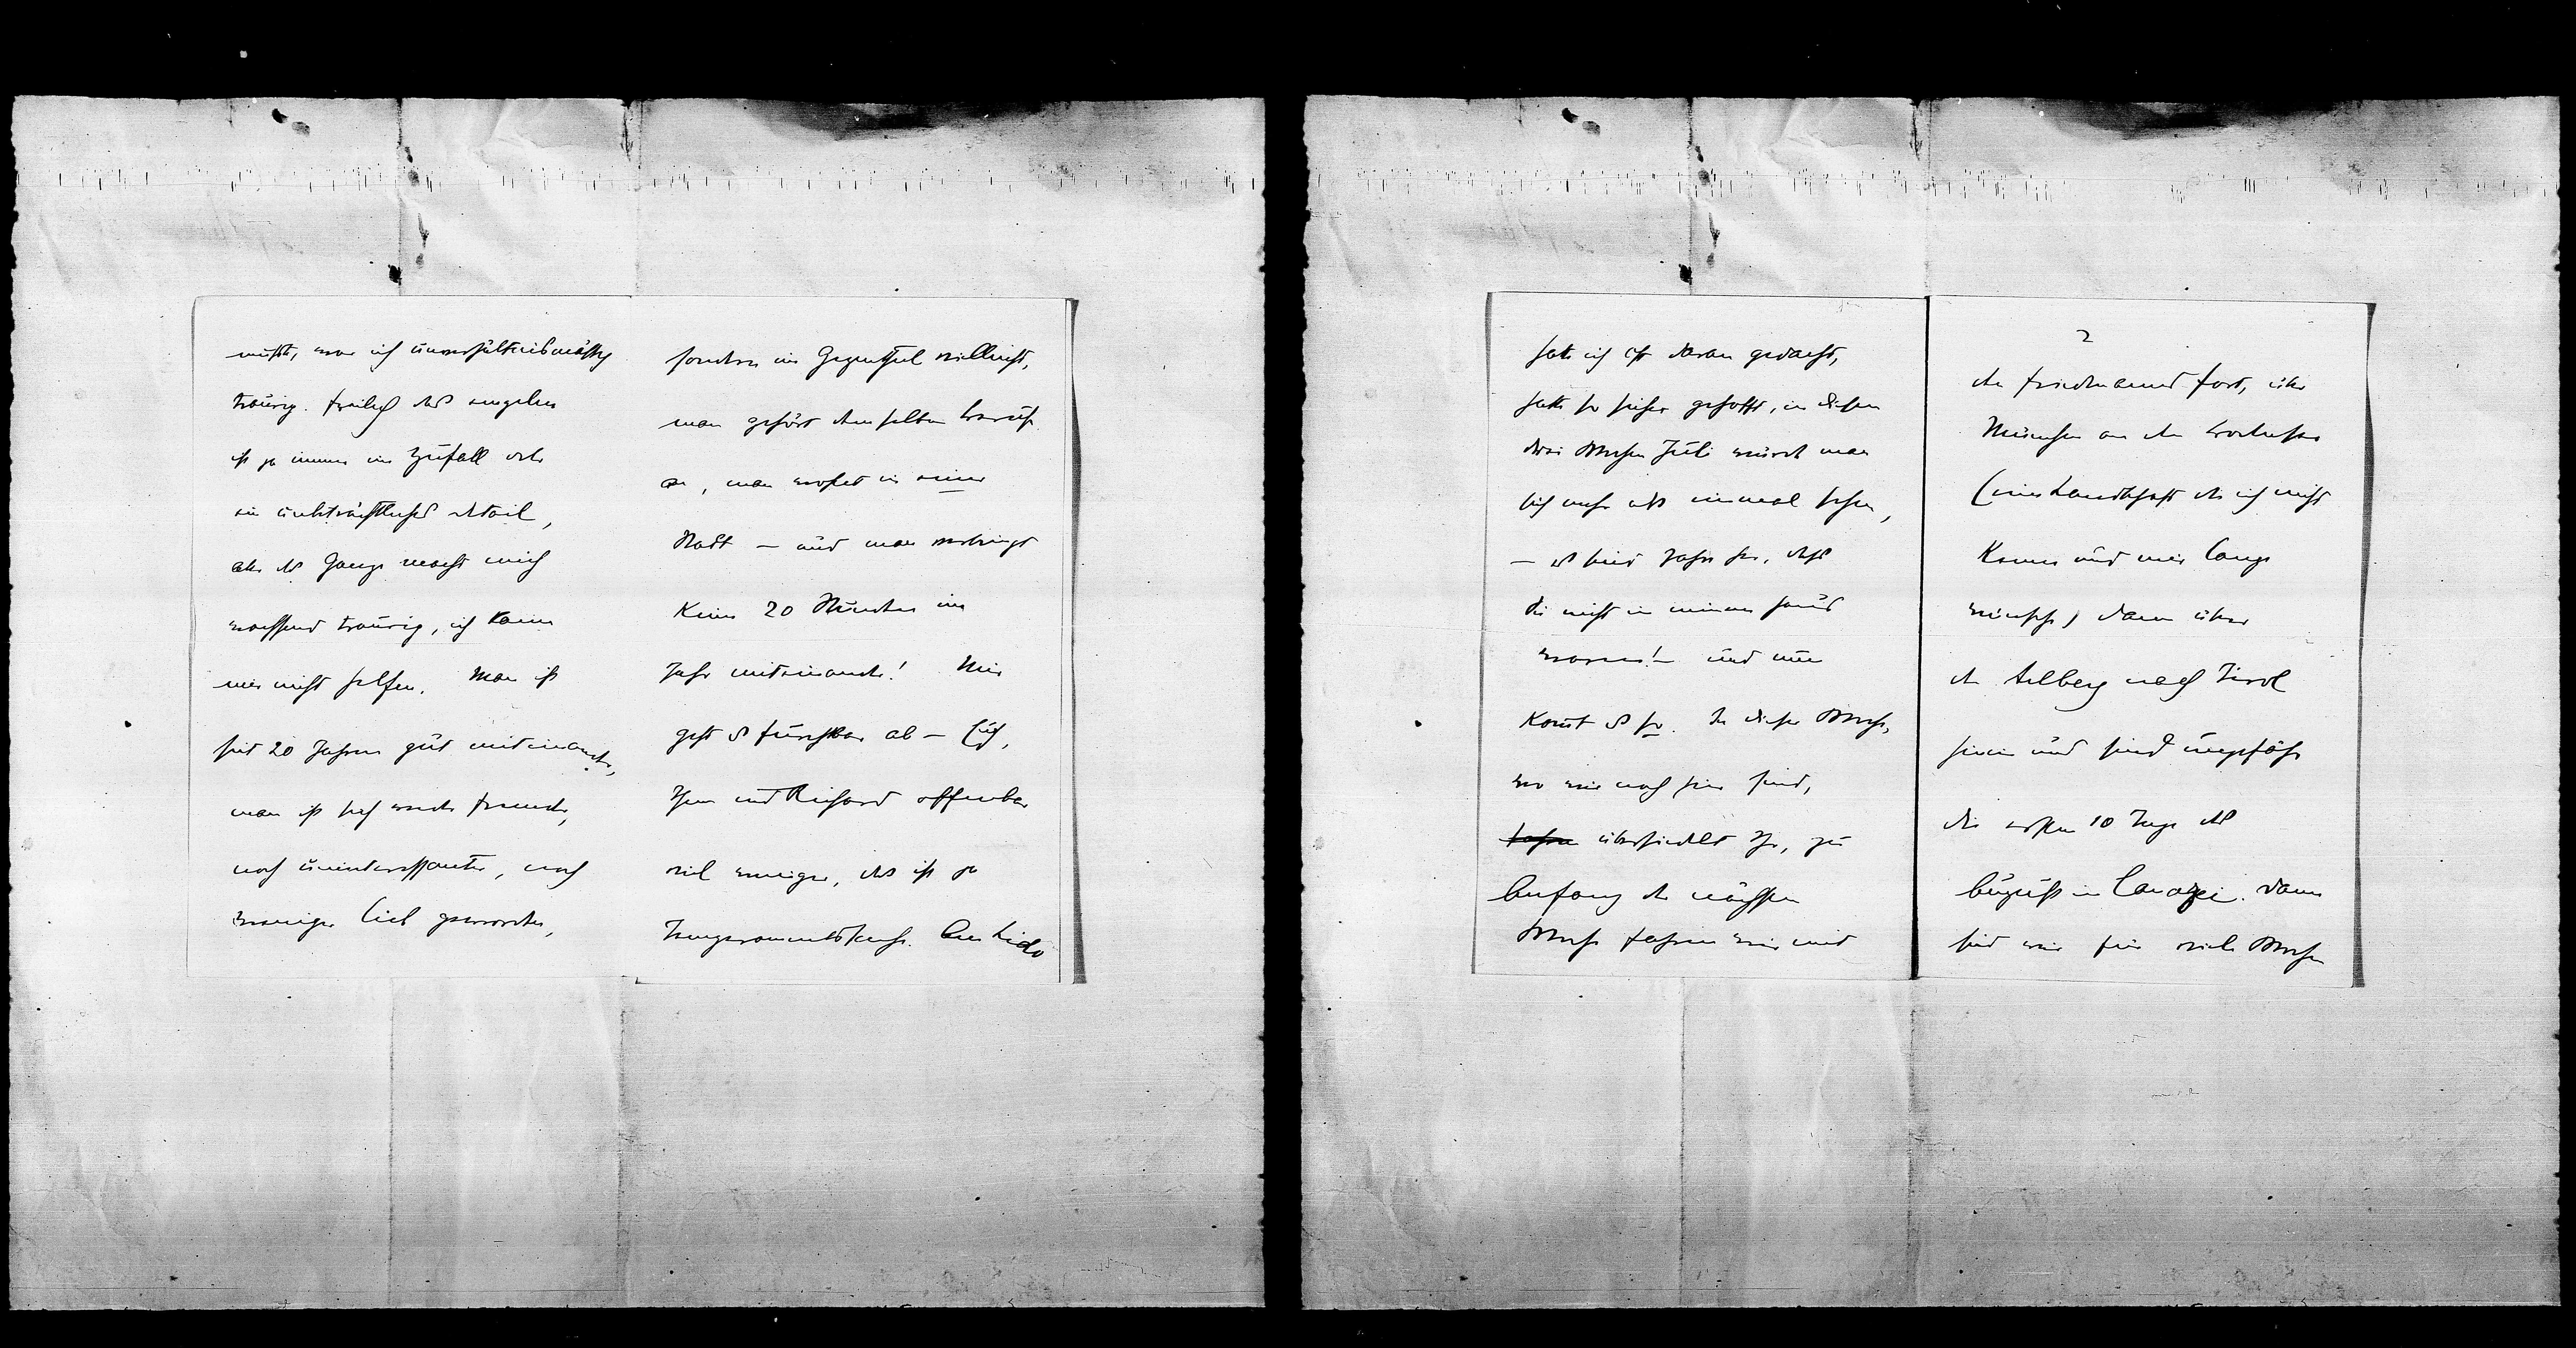 müsste, war ich unverhältnismässig
traurig. freilich das einzelne
ist ja immer ein Zufall oder
ein unbeträchtliches detail,
aber das Ganze macht mich
wachsend traurig, ich kann
mir nicht helfen. Man ist
seit 20 Jahren gut miteinander,
man ist sich weder fremder,
noch uninteressanter, noch
weniger lieb geworden,
sondern im Gegentheil vielleicht,
man gehört demselben Beruf
an, man wohnt in einer
Stadt – und man verbringt
keine 20 Stunden im
Jahr miteinander! Mir
geht es furchtbar ab –
Ihnen und Richard offenbar
viel weniger, das ist ja
Temperamentssache. Am Lido
hatte ich oft daran gedacht,
hatte so sicher gehofft, in diesen
drei Wochen Juli würde man
sich mehr als einmal sehen,
– es sind Jahre her, dass
Sie nicht in meinem Haus
waren! – und nun
komt es so. In dieser Woche,
wo wir noch hier sind,
übersiedelt Ihr, zu
Anfang der nächsten
Woche fahren wir mit
2
den Friedmanns fort, über
München an den Bodensee
(eine Landschaft die ich nicht
kenne und mir lange
wünsche) dann über
den Arlberg nach Tirol
hinein und sind ungefähr
die ersten 10 Tage des
August in Canazei. Dann
sind wir für viele Wochen